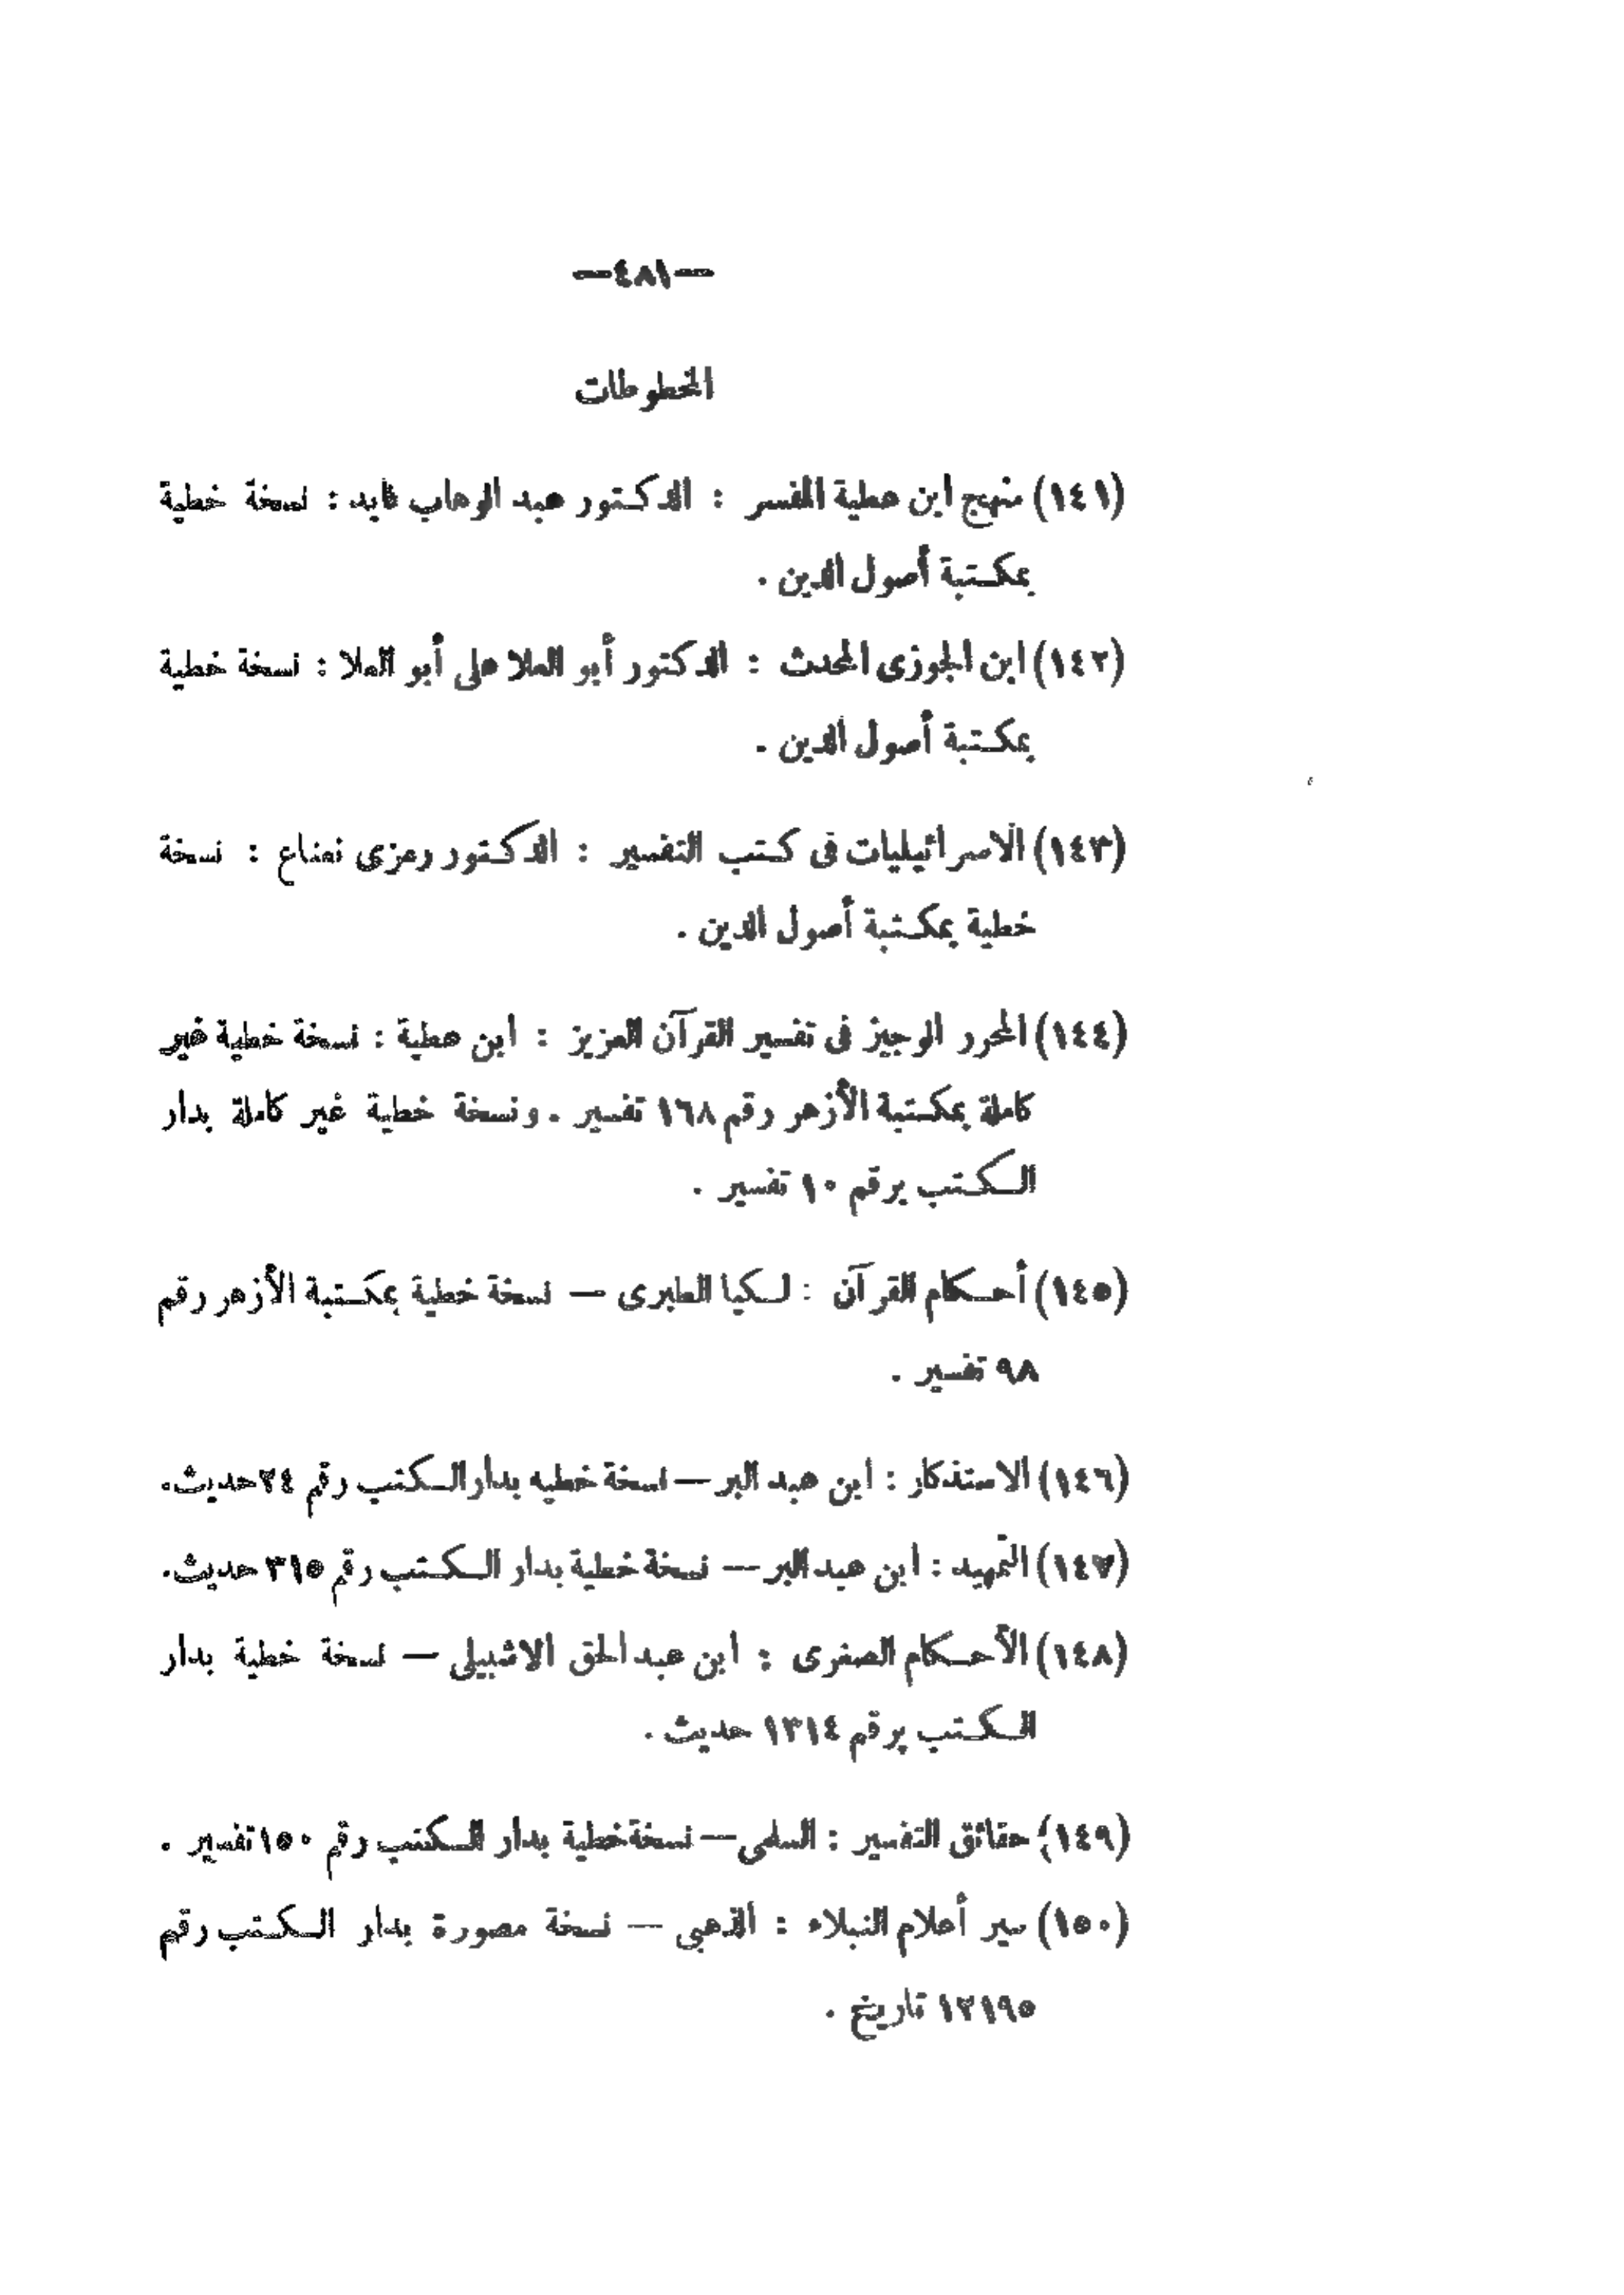 —٤٨١—
المخطوطات
(١٤١) منهج ابن عطية المفسر : الدكتور عبد الوهاب فايد : نسخة خطية
بمكتبة أصول الدين .
(١٤٢) ابن الجوزى المحدث : الدكتور أبو العلا على أبو العلا : نسخة خطية
بمكتبة أصول الدين .
(١٤٣) الاسرائيليات فى كتب التفسير : الدكتور رمزى نعناع : نسخة
خطية بمكتبة أصول الدين .
(١٤٤) المحرر الوجيز فى تفسير القرآن العزيز : ابن عطية : نسخة خطية غير
كاملة بمكتبة الأزهر رقم ١٦٨ تفسير . ونسخة خطية غير كاملة بدار
الكتب برقم ١٠ تفسير .
(١٤٥) أحكام القرآن : لكيا الطبرى — نسخة خطية بمكتبة الأزهر رقم
٩٨ تفسير .
(١٤٦) الاستذكار : ابن عبد البر — نسخة خطيه بدار الكتب رقم ٢٤ حديث.
(١٤٧) التمهيد : ابن عبد البر — نسخة خطية بدار الكتب رقم ٣١٥ حديث.
(١٤٨) الأحكام الصغرى : ابن عبد الحق الاشبيلى — نسخة خطية بدار
الكتب برقم ١٣١٤ حديث .
(١٤٩) حقائق التفسير : السلمى — نسخة خطية بدار الكتب رقم ١٥٠ تفسير .
(١٥٠) سير أعلام النبلاء : الذهبى — نسخة مصورة بدار الكتب رقم
١٢١٩٥ تاريخ .